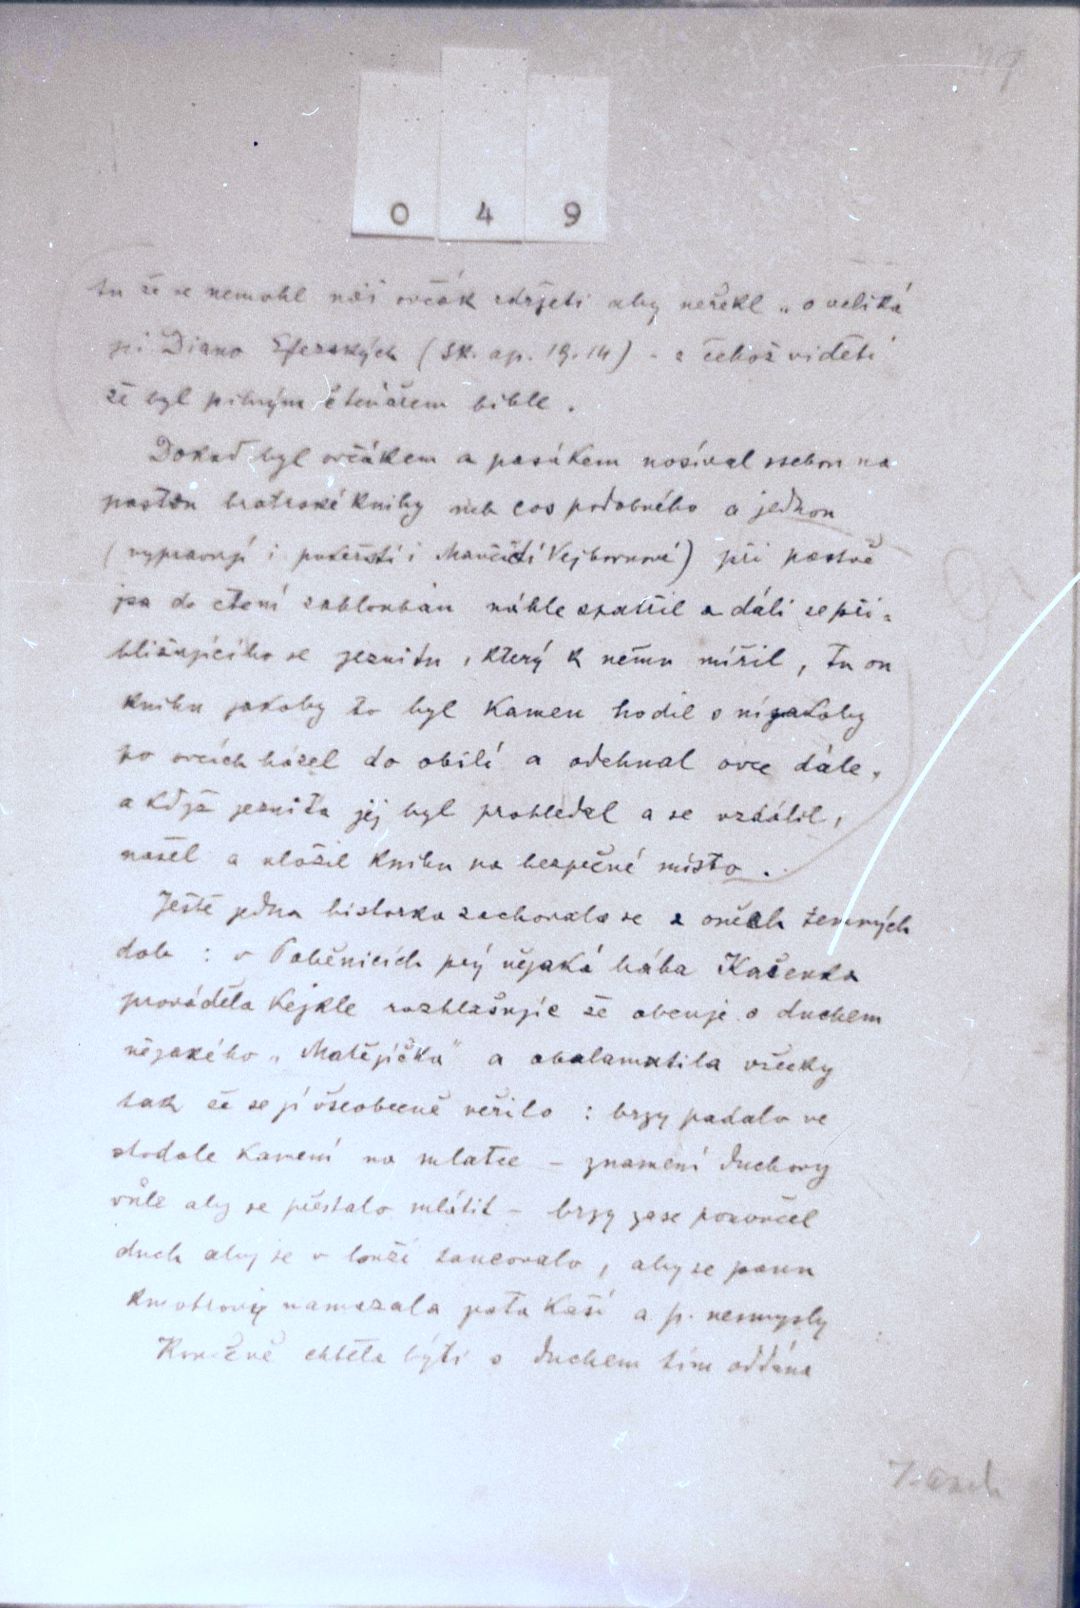 49
0 4 9
tu že se nemohl náš ovčák zdržeti aby neřekl „o veliká
jsi Diano Efezských (Sk. ap. 19.14) - z čehož viděti
že byl pilným čtenářem bible.
Dokud byl ovčákem a pasákem nosíval ssebou na
pastvu bratrské knihy neb cos podobného a jednou
(vypravují i Mančiští Vejbornové) při pastvě
jsa do čtení zahlouban náhle spatřil z dáli se při-
bližujícího se jezuitu, který k němu mířil, tu on
knihu jakoby to byl kamen hodil s ní jakoby
po ovcích házel do obilí a odehnal ovce dále,
a když jezuita jej byl prohledal a se vzdálil,
našel a uložil knihu na bezpečné místo.
Ještě jedna historka zachovala se z oněch temných
dob: v Paběnicích prý nějaká bába Kačenka
prováděla kejkle rozhlašujíc že obcuje s duchem
nějakého „Matějíčka" a obalamutila všecky
tak že se jí všeobecně věřilo: brzy padalo ve
stodole kamení na mlatce - znamení duchovy
vůle aby se přestalo mlátit - brzy zase poručel
duch aby se v louži tancovalo, aby se panu
kmotrovi namazala pata kaší a p. nesmysly
Konečně chtěla býti s duchem tím oddána